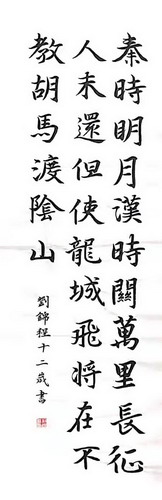 秦時明月漢時關萬里長征
人未還但使龍城飛将在不
教胡馬渡陰山
劉錦程十二歲書